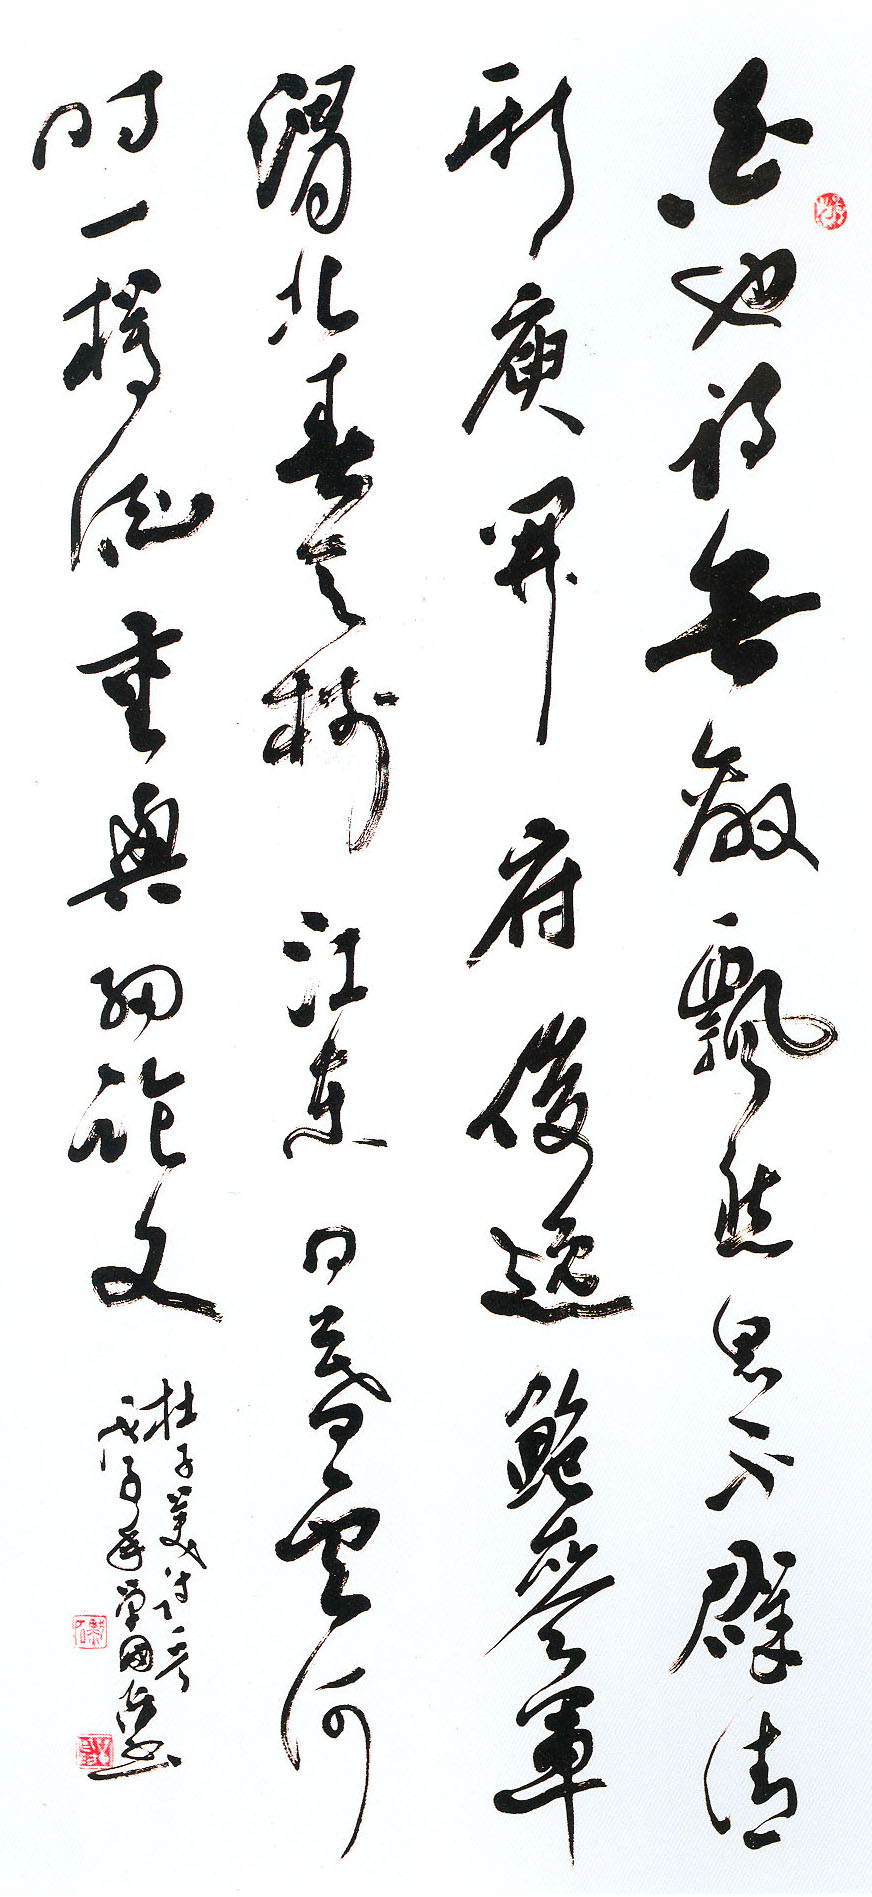 白也詩無敵飄然思不群清
新庾開府俊逸鮑參軍
渭北春天樹江東日暮雲何
時一樽酒重與細論文
杜子美詩
戊子年